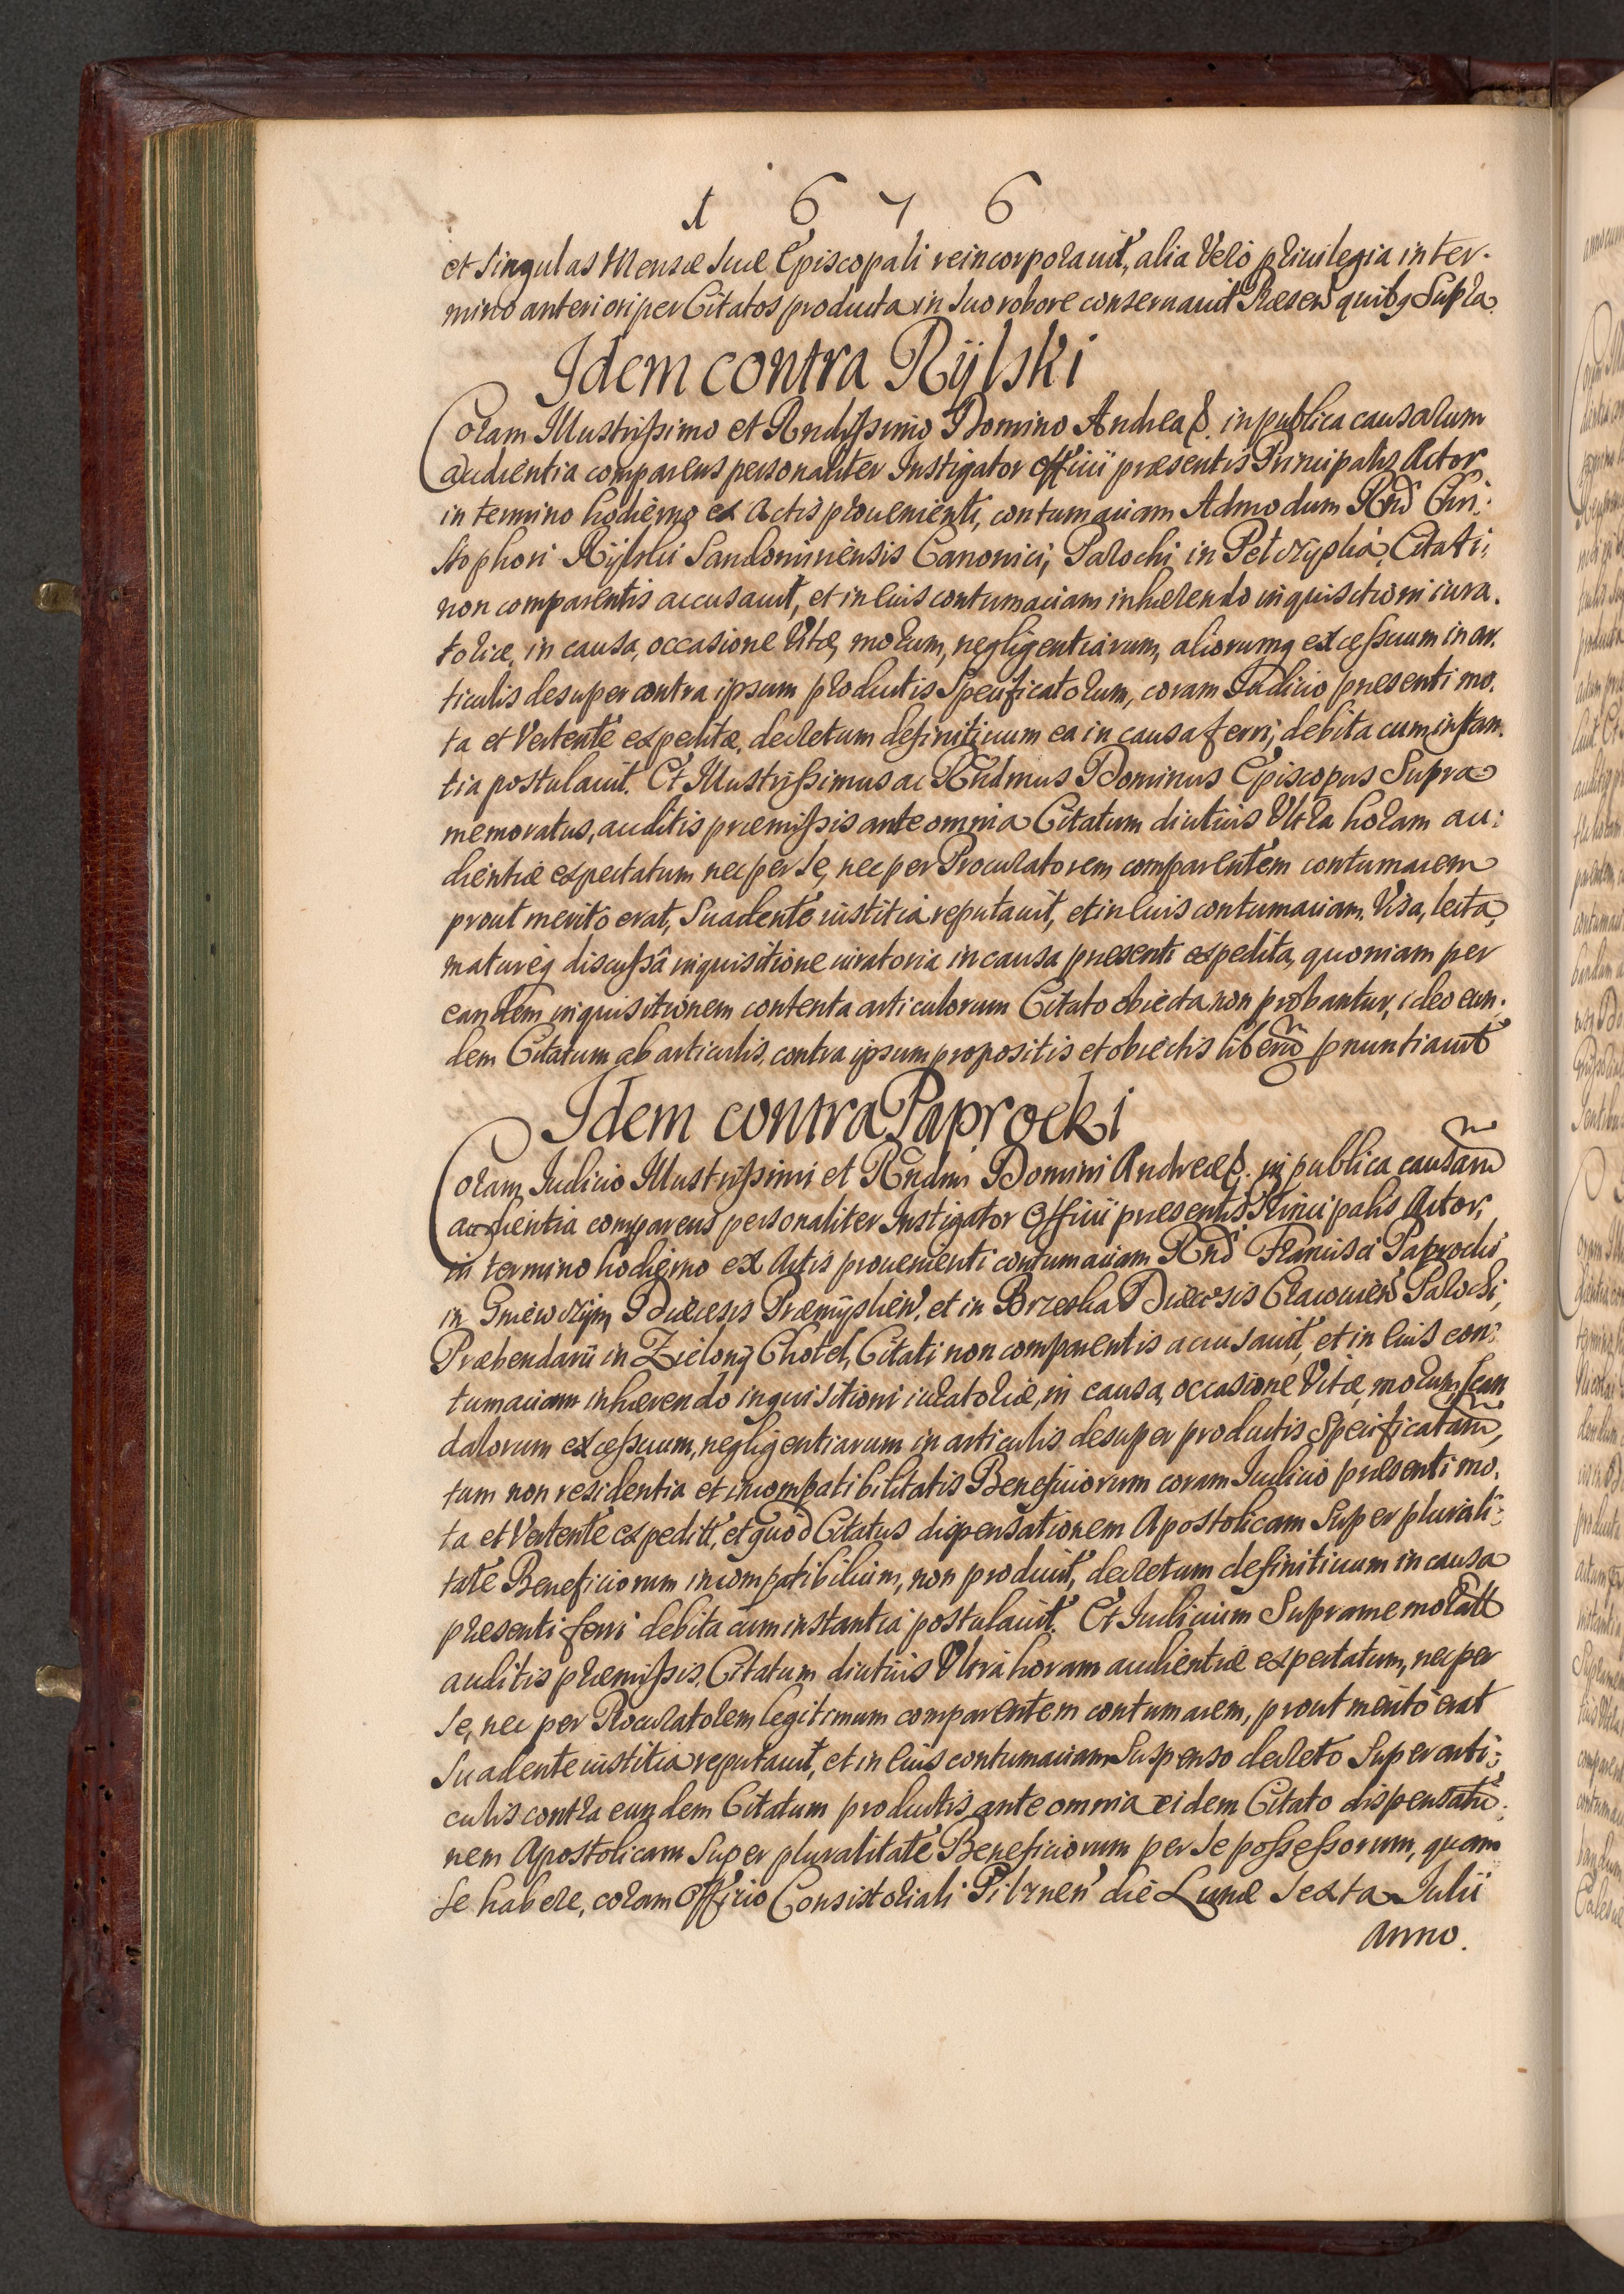 1 6 7 6
et singulas Mensæ suæ Episcopali reincorporauit, alia Vero priuilegia in ter-
mino anteriori per Citatos producta in suo robore conseruauit Præsen quibq Supra.
Idem contra Rÿlski
Coram Illustrissimo et Rndissimo Domino Andrea &. in publica causarum
audientia comparens personaliter Instigator Officii præsentis Principalis Actor
in termino hodierno ex Actis proueniente, contumaciam Admodum Rnd Chri:
stophori Rÿlski Sandomiriensis Canonici, Parochi in Petrzÿskia, Citati,
non comparentis accusauit, et in eius contumaciam inhærendo inquisitioni iura.
toriæ, in causa, occasione Vitæ, morum, negligentiarum, aliorumq excessuum in ar.
ticulis desuper contra ipsum productis Specificatorum, coram Iudicio præsenti mo.
ta et Vertente expeditæ, decretum definitiuum ea in causa ferri, debita cum instan.
tia postulauit. Et Illustrissimus ac Rndmus Dominus Episcopus Supra
memoratus, auditis præmissis ante omnia Citatum diutius Vltra horam au:
dientiæ expectatum nec per se, nec per Procuratorem comparentem contumacem
prout merito erat, Suadente iustitia reputauit, et in eius contumaciam. Visa, lecta,
matureq discussâ inquisitione iuratoria in causa præsenti expedita, quoniam per
eandem inquisitionem contenta articulorum Citato obiecta non probantur, ideo eun.
dem Citatum ab articulis, contra ipsum propositis et obiectis liberū pnuntiauit
Idem contra Paprocki
Coram Iudicio Illustrissimi et Rndmi Domini Andreæ &. in publica causarū
audientia comparens personaliter Instigator Officii præsentis Principalis Actor,
in termino hodierno ex Actis prouenienti contumaciam Rnd Francisci Paprocki
in Gniewczÿn Diœcesis Præmÿslien, et in Brzeska Diœcesis Cracouien Parochi,
Præbendarii in Zielonÿ Chotel, Citati non comparentis accusauit, et in eius con:
tumaciam inhærendo inquisitioni iuratoriæ, in causa, occasione Vitæ, morum, scan
dalorum excessuum, negligentiarum in articulis desuper productis Specificatarū,
tum non residentia et incompatibilitatis Beneficiorum coram Iudicio præsenti mo.
ta et Vertente expedit, et quod Citatus dispensationem Apostolicam Super plurali:
tate Beneficiorum incompatibilium, non produxit, decretum definitiuum in causa
præsenti ferri debita cum instantia postulauit. Et Iudicium Supramemoratt
auditis præmissis, Citatum diutius Vltra horam audientiæ expectatum, nec per
se, nec per Procuratorem legitimum comparentem contumacem, prout merito erat
Suadente iustitia reputauit, et in eius contumaciam Suspenso decreto Super arti:
culis contra eundem Citatum productis, ante omnia eidem Citato dispensatio:
nem Apostolicam Super pluralitate Beneficiorum per se possessorum, quam
se habere, coram Officio Consistoriali Pilznen die Lunæ Sexta Iulii
Anno.